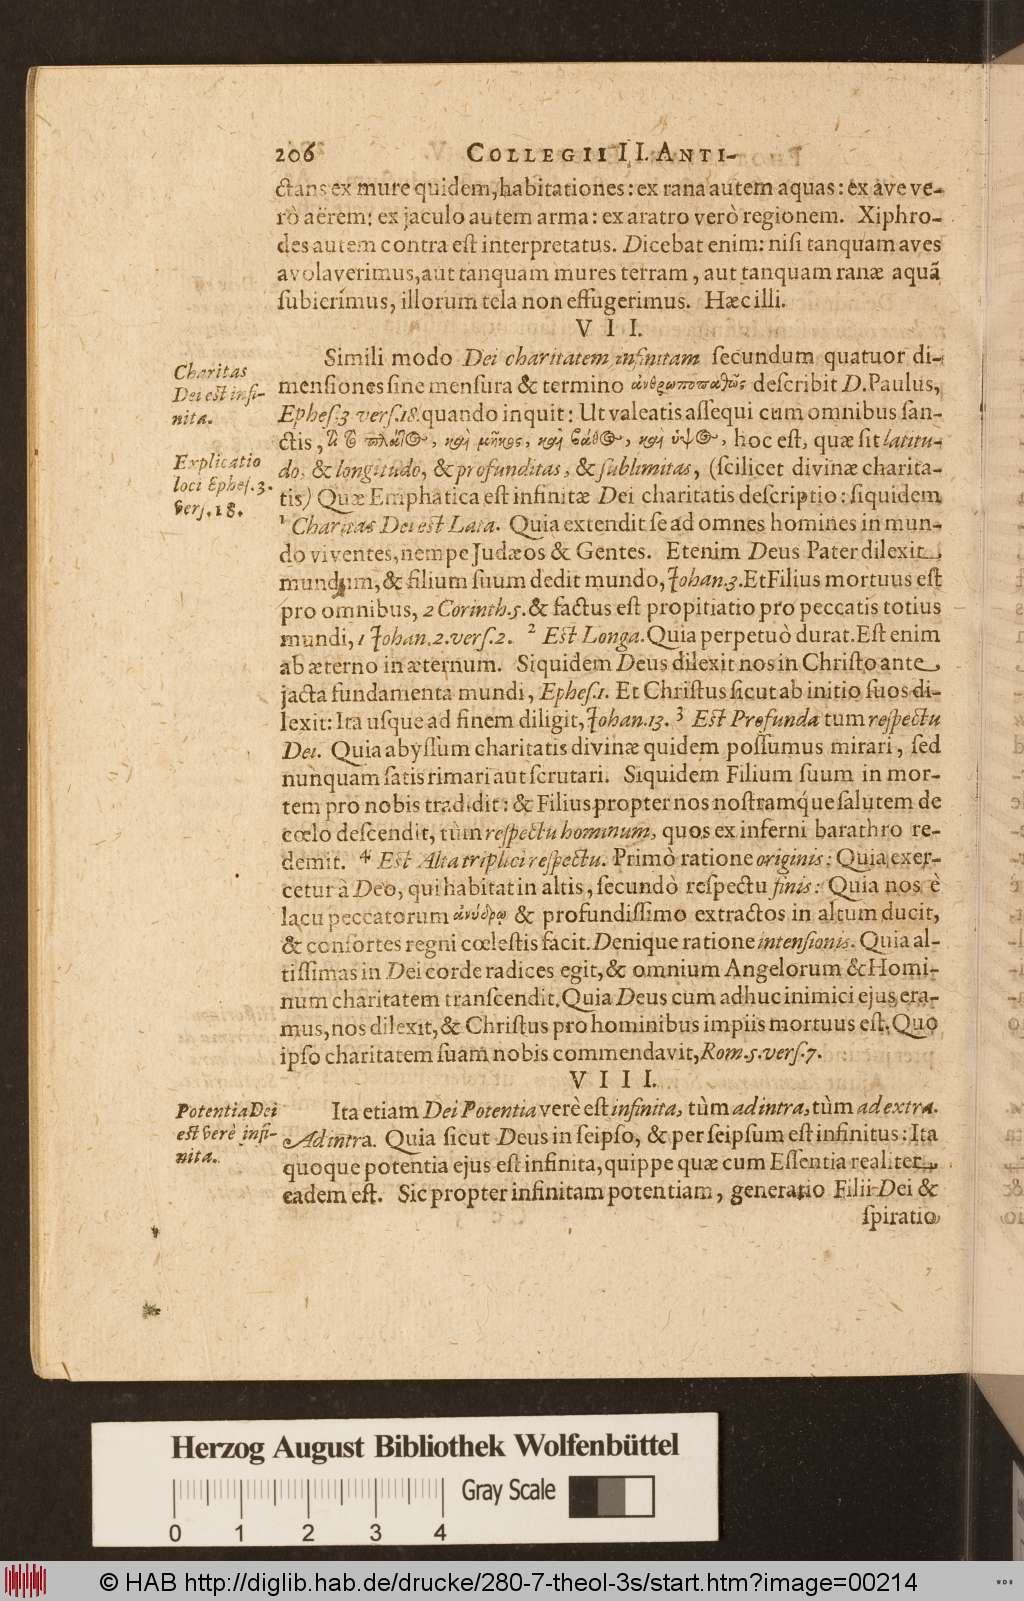 206 COLLEGII II. ANTI-
ctans ex mure quidem, habitationes: ex rana autem aquas: ex ave ve-
rò aërem: ex jaculo autem arma: ex aratro verò regionem. Xiphro-
des autem contra est interpretatus. Dicebat enim: nisi tanquam aves
avolaverimus, aut tanquam mures terram, aut tanquam ranæ aquã
subierimus, illorum tela non effugerimus. Hæc illi.
VII.
Charitas
Dei est infi-
nita.
Simili modo Dei charitatem infinitam secundum quatuor di-
mensiones sine mensura & termino ἀνθρωποπαθῶς describit D. Paulus,
Ephes.3 vers.18. quando inquit: Ut valeatis assequi cum omnibus san-
Explicatio
loci Ephes.3.
vers.18.
ctis, τί τὸ πλάτος, καὶ μῆκος, καὶ βάθος, καὶ ὕψος, hoc est, quæ sit latitu-
do, & longitudo, & profunditas, & sublimitas, (scilicet divinæ charita-
tis) Quæ Emphatica est infinitæ Dei charitatis descriptio: siquidem
1 Charitas Dei est Lata. Quia extendit se ad omnes homines in mun-
do viventes, nempe Judæos & Gentes. Etenim Deus Pater dilexit
mundum, & filium suum dedit mundo, Johan.3. Et Filius mortuus est
pro omnibus, 2 Corinth.5. & factus est propitiatio pro peccatis totius
mundi, 1 Johan.2. vers.2. 2 Est Longa. Quia perpetuò durat. Est enim
ab æterno in æternum. Siquidem Deus dilexit nos in Christo ante
jacta fundamenta mundi, Ephes.1. Et Christus sicut ab initio suos di-
lexit: Ita usque ad finem diligit, Johan.13. 3 Est Profunda tum respectu
Dei. Quia abyssum charitatis divinæ quidem possumus mirari, sed
nunquam satis rimari aut scrutari. Siquidem Filium suum in mor-
tem pro nobis tradidit: & Filius propter nos nostramq́ue salutem de
cœlo descendit, tùm respectu hominum, quos ex inferni barathro re-
demit. 4 Est Alta triplici respectu. Primò ratione originis: Quia exer-
cetur à Deo, qui habitat in altis, secundò respectu finis: Quia nos è
lacu peccatorum ἀνύδρῳ & profundissimo extractos in altum ducit,
& consortes regni cœlestis facit. Denique ratione intensionis. Quia al-
tissimas in Dei corde radices egit, & omnium Angelorum & Homi-
num charitatem transcendit. Quia Deus cum adhuc inimici ejus era-
mus, nos dilexit, & Christus pro hominibus impiis mortuus est. Quo
ipso charitatem suam nobis commendavit, Rom.5. vers.7.
VIII.
Potentia Dei
est verè infi-
nita.
Ita etiam Dei Potentia verè est infinita, tùm ad intra, tùm ad extra.
Ad intra. Quia sicut Deus in seipso, & per seipsum est infinitus: Ita
quoque potentia ejus est infinita, quippe quæ cum Essentia realiter
eadem est. Sic propter infinitam potentiam, generatio Filii Dei &
spiratio
Herzog August Bibliothek Wolfenbüttel
Gray Scale
0 1 2 3 4
© HAB http://diglib.hab.de/drucke/280-7-theol-3s/start.htm?image=00214